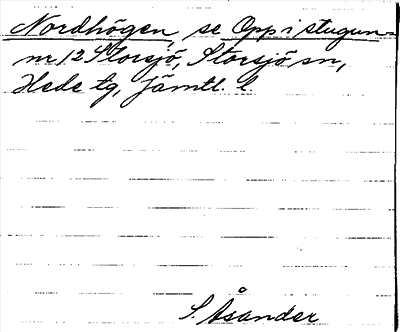 Nordhögen, se Opp i stugun-
nr 12 Storsjö, Storsjö sn,
Hede tg, Jämtl. l.
S. Åsander